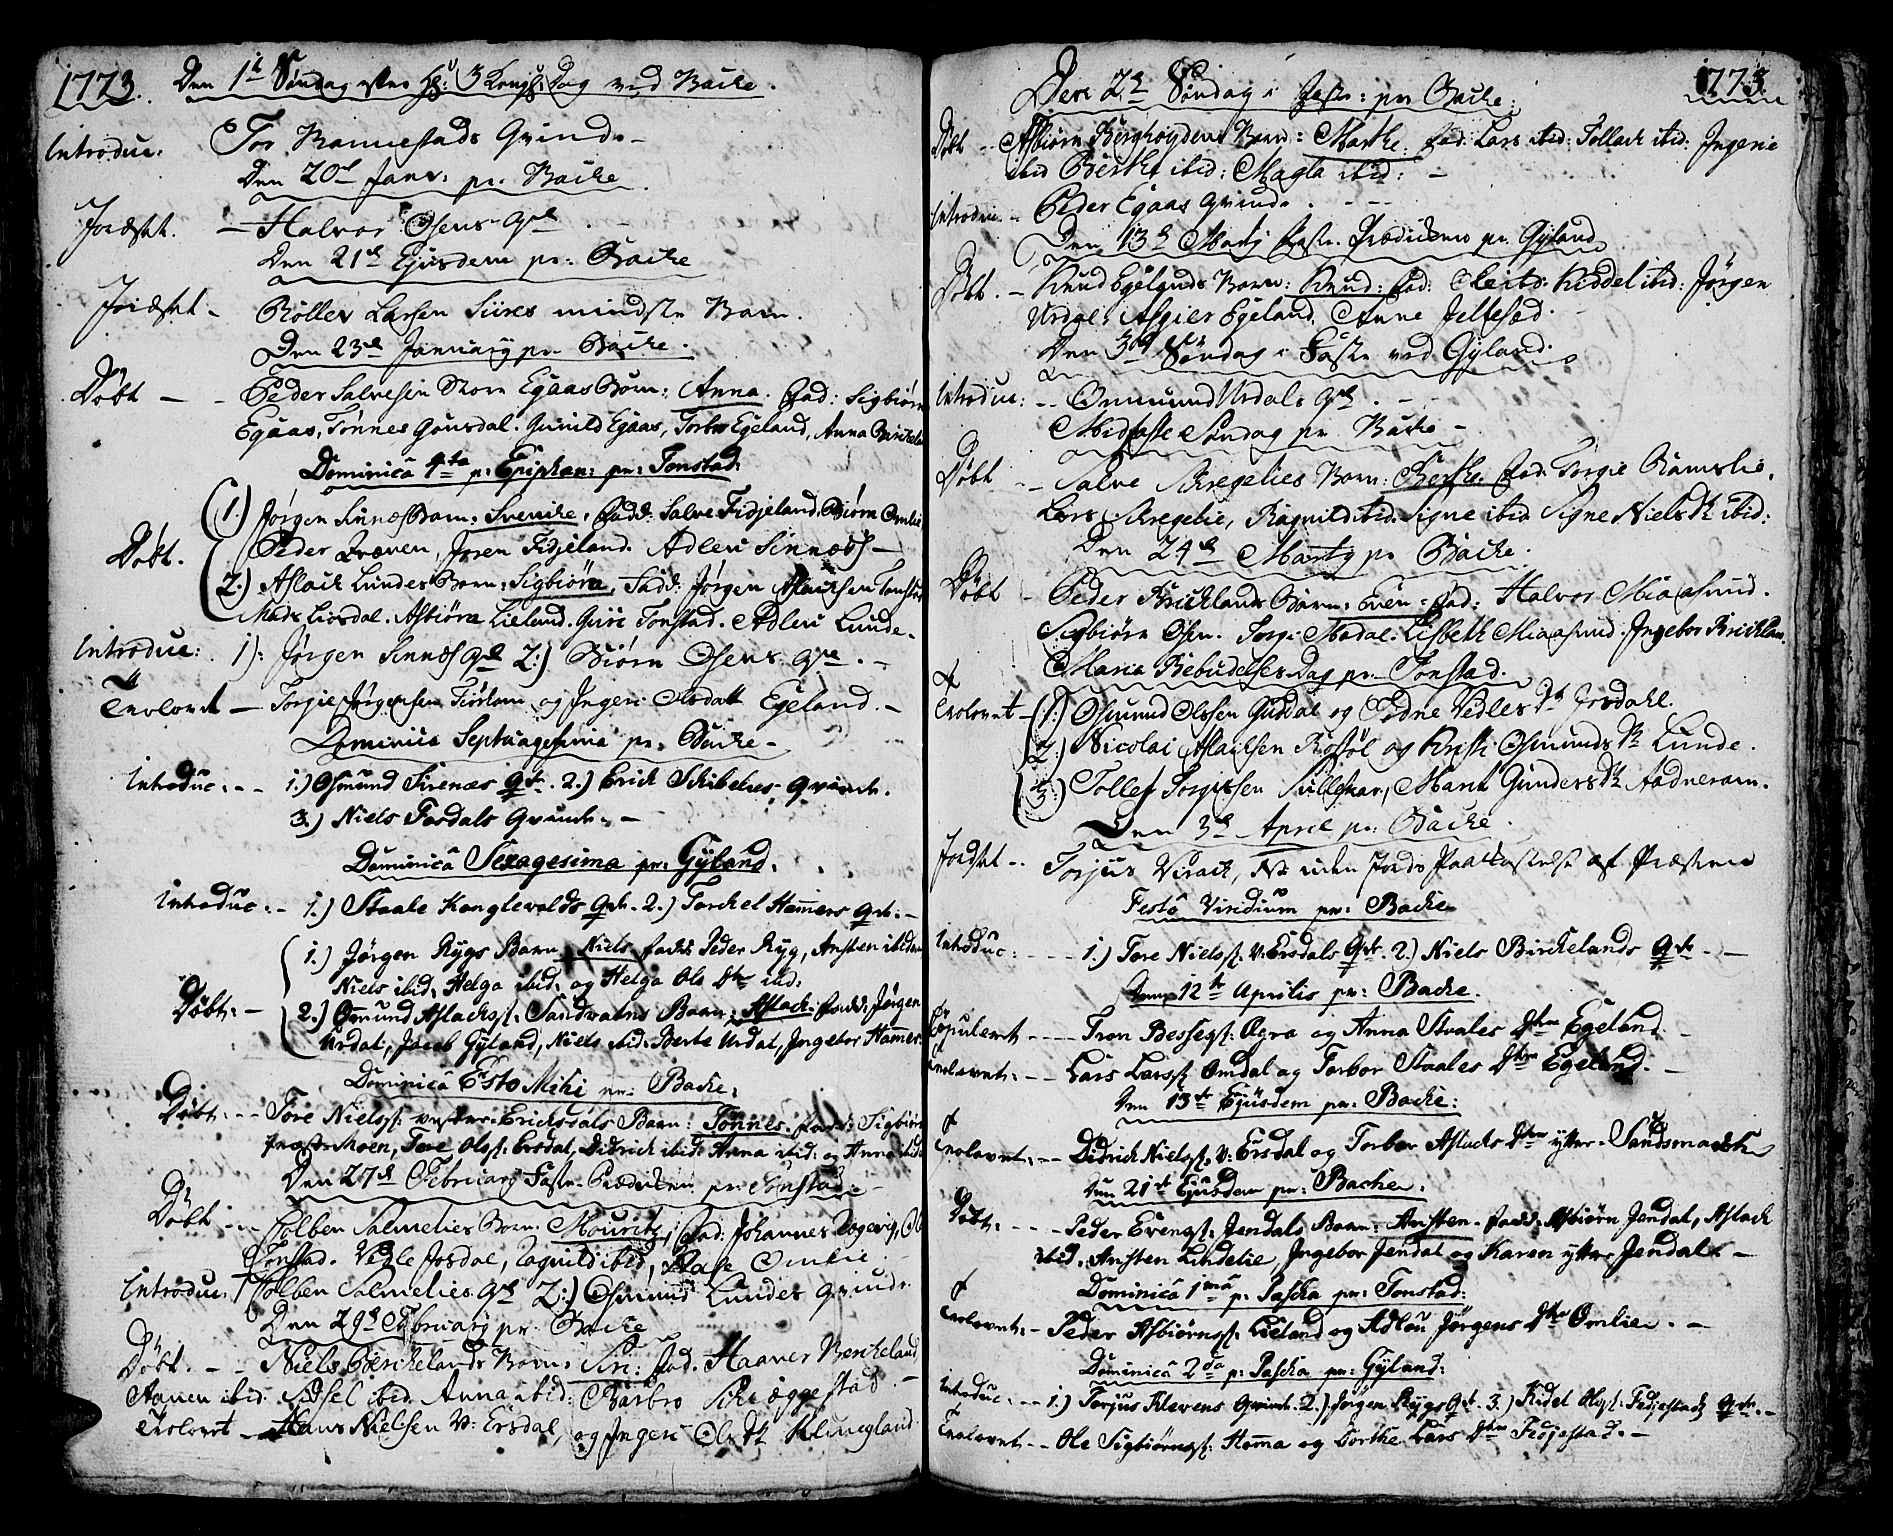 1773. Den 1te Søndag efter H: 3 Kong: Dag ved Backe.
Introduc: Tor Rannestads Qvinde
Den 20de Janv: pr. Backe
Jordfæstet. — Halvor Osens Qde
Den 21de Ejusdem pr: Backe
Røllev Larsen Siires mindste Barn.
Den 23de January pr. Backe.
Døbt — Peder Salvesen Egaas Barn: Anna. Fad: Sigbiørn
Egaas, Tønnes Gousdal. Gunild Egaas, Torbor Egeland, Anna
Dominica 4ta p: Epiphan: pr: Tonstad:
1.) Jørgen Sinnes Barn: Svenike, Fadd: Salve Fidjeland. Biørn Omlie
Døbt. Peder Qvæven, Joren Fidjeland. Adleu Sinnes
2.) Aslack Lundes Barn: Sigbiørn, Fadd: Jørgen Aslacksen Tonstad
Mads Liosdal. Asbiørn Lieland. Guri Tonstad. Adleu Lunde.
Introduc: 1): Jørgen Sinnes Qde 2:) Biørn Osens Qde.
Trolovet — Torgie Jørgensen Fiotland og Ingeri Olsdatt Egeland.
Dominica Septuagesima pr. Backe
Introduc: 1.) Osmund Sirenæs Qde. 2.) Erick Skibelies Qvinde.
3.) Niels Fasdals Qvinde.
Dominica Sexagesima pr: Gyland.
Introduc: 1.) Staale Konglevolds Qde. 2.) Torckel Hammers Qde.
1.) Jørgen Rygs Barn Niels. Fadd: Peder Ryg, Ansten ibidem
Niels ibid: Helga ibid: og Helga Ols Dtr ibd:
Døbt: 2.) Omund Aslacks: Sandvatns Barn: Aslack. Fadd: Jørgen
Urdal, Jacob Gyland, Niels ibid: Berte Urdal, Ingebor Hammer
Dominica Esto Mihi pr: Backe:
Døbt: Tore Niels: vester Ericksdals Barn: Tønnes. Fadd: Sigbiørn
Moen, Tore Ols: Ersdal, Didrick ibid: Anna ibid: og Anna ibid
Den 27de February Faste Prædicken pr: Tonstad:
Døbt Tolben Salmelies Barn: Mouritz, Fad: Johannes
Tonstad. Vedle Josdal, Ragnild ibid, Aase Omlie
Introduc: 1) Tolben Salmelies Qde 2:) Osmund Lundes Qvinde
Den 29de February pr. Backe
Døbt. Niels Berckelands Barn: Siri: Fad. Haaver Berckeland
Aanen ibid Sidsel ibid. Anna ibid: Barbro
Trolovet Hans Nielsen V: Ersdal, og Ingeri Ols Dtr Klungland
Den 2de Søndag i Faste: pr Backe: 1773.
Døbt Asbiørn Berghøydens Barn: Marthe: Fad: Lars ibid: Tollack ibid: Ingerie
ibid Berthe ibid: Magla ibid:
Introduc. Peder Egaas Qvinde.
Den 13de Martij Faste Prædicken pr: Gyland
Døbt. Knud Egelands Barn: Knud: Fad: Kiddel ibid: Jørgen
Urdal: Asgier Egeland. Anne Jellestad.
Den 3de Søndag i Faste ved Gyland.
Introduc: Ommund Urdals Qde.
Midfaste Søndag pr Backe
Døbt Salve Skregelies Barn: Berthe. Fad: Torgie Ramslie.
Lars Skregelie, Ragnild ibid. Signe ibid Signe Niels Dtr ibid:
Den 24de Marty pr Backe.
Døbt Peder Bricklands Barn: Even: Fad: Halvor Miaasund.
Sigbiørn Osen. Torgr: Modal. Lisbeth Miaasund. Ingebor Bricklan
Maria Bebudelses Dag pr. Tonstad.
Trolovet (1.) Osmund Olssen Guddal og Vedles Dt Josdahl.
2.) Nicolai Aslacksen Rosføl og Osmunds Dtr Lunde.
3.) Tollef Torgiesen Sulleskar, Marit Gunders Dtr Aadneram.
Den 3de April pr: Backe.
Torjus Virack, NB uden Jords Paakastelse af Præsten
Festo Viridium pr: Backe
Introduc: 1.) Tore Niels: V: Ersdals Qde. 2.) Niels Birckelands Qde
12te Aprilis pr: Backe.
Copuleret Tron Besseq: Aera og Anna Staales Dtr Egeland.
Trolovet: Lars Lars: Omdal og Torbor Staales Dtr Egeland.
Den 13de Ejusdem pr: Backe:
Trolovet: Didrick Niels: V: Ersdal og Torbor Aslacks Dtr ytter Sandsmarck
Den 21de Ejusdem pr: Backe.
Døbt: Peder Evengs: Jendals Barn: Ansten. Fadd: Asbiørn Jendal, Aslack
ibid. Ansten Lindelie, Ingebor Jendal og Karen ytter Jendal.
Dominica 1ma p: Pascha pr: Tonstad:
Trolovet: Peder Asbiørns: Lieland og Adlou Jørgens Dtr Omlie.
Dominica 2da p: Pascha pr: Gyland:
Introduc: 1.) Torjus Klevens Qvinde. 2.) Jørgen Rygs Qde. 3.) Kidel Ols: Fedjestads Qde.
Trolovet: Ole Sigbiørns: Homma og Dorthe Lars Dtr Fedjestad.